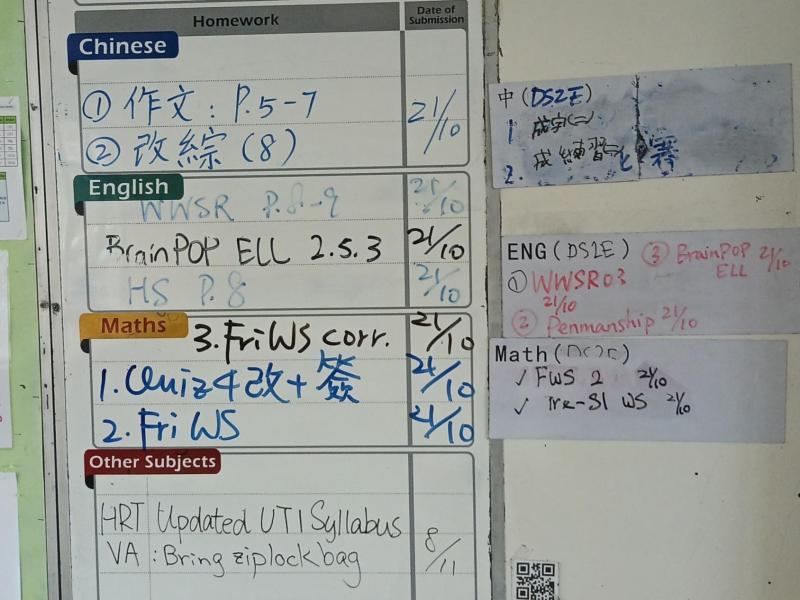 Homework Date of Submission
Chinese
① 作文：P.5-7 21/10
② 改綜(8)
English
WWSR P.8-9 21/10
BrainPOP ELL 2.5.3 21/10
HS P.8 21/10
Maths
3. Fri WS corr. 21/10
1. Quiz 4 改+簽 21/10
2. Fri WS 21/10
Other Subjects
HRT Updated UT1 Syllabus
VA : Bring ziplock bag 8/11
中(DS2E)
1. 成字(二)
2. 成 練習
ENG (DS2E) ③ BrainPOP 21/10
ELL
① WWSR03
21/10
② Penmanship 21/10
Math
✓ FWS 2 21/10
✓ Pre-S1 WS 21/10